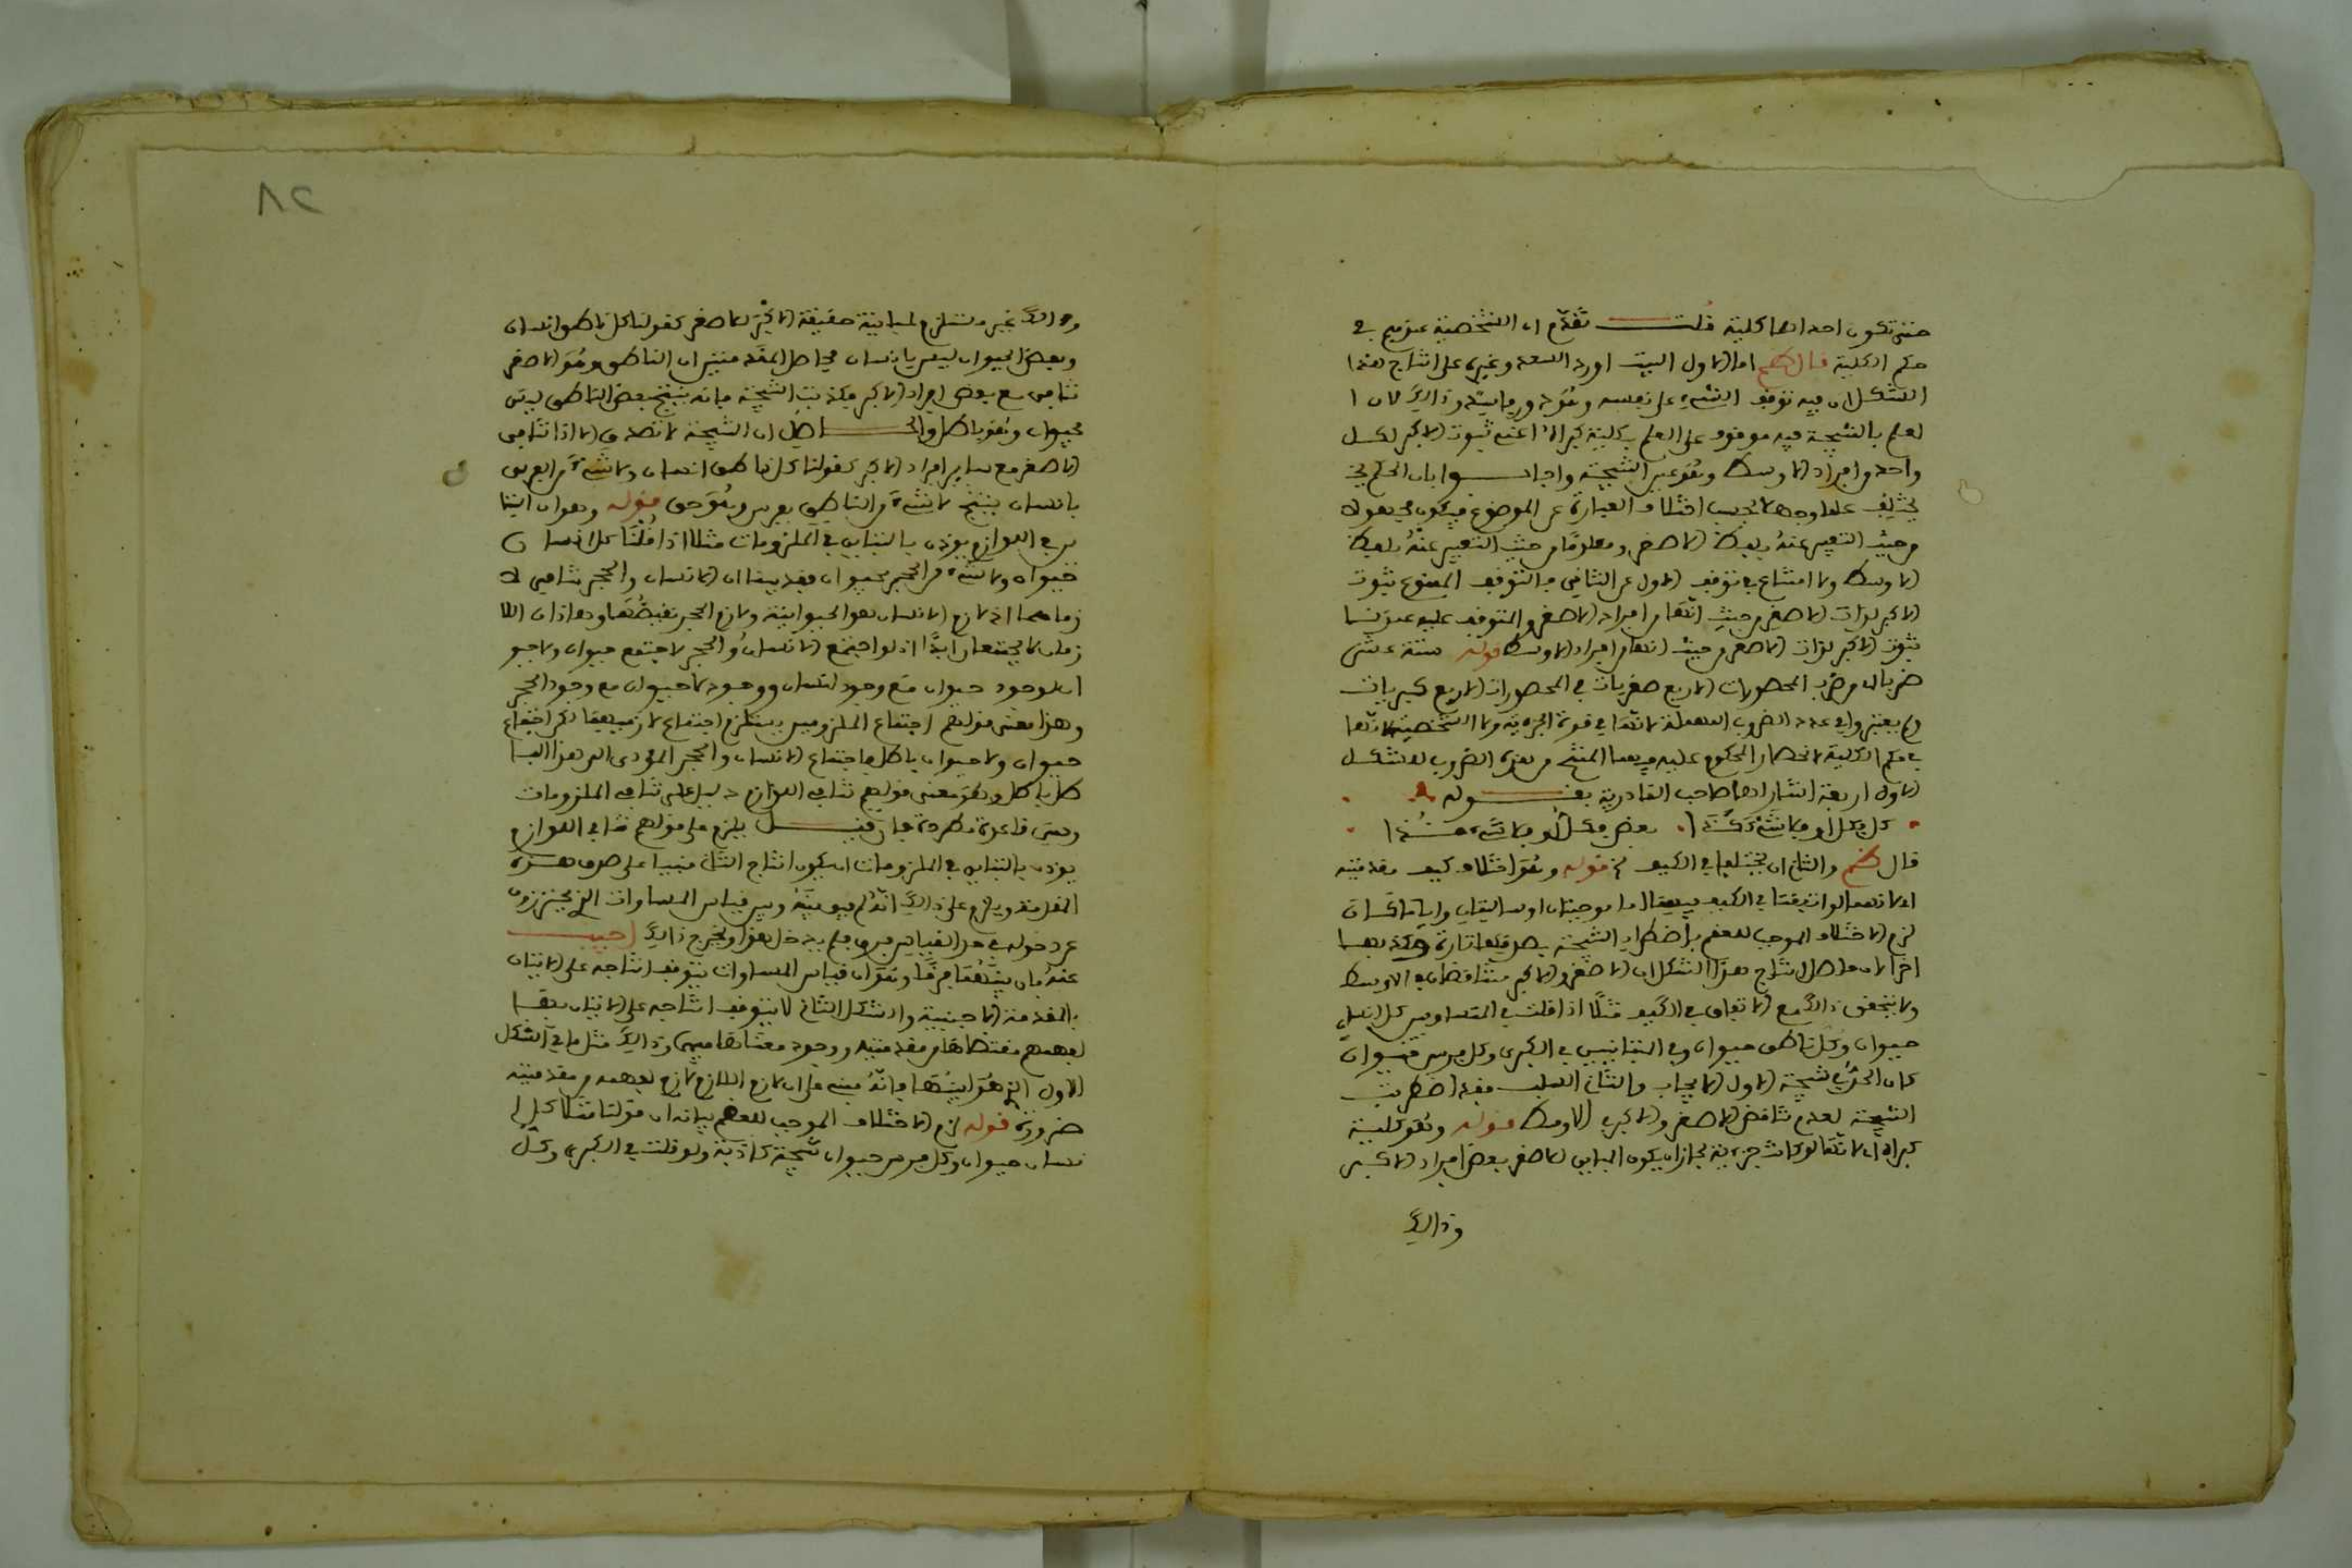 حتى تكون احداهما كلية قلت تقدم ان الشخصية عندهم في
حكم الكلية قال اما الاول البيت اورد السعد وغيره على انتاج هذا
الشكل ان فيه توقف الشيء على نفسه وهو دور وبيانه وذالك لان ا
لعلم بالنتيجة فيه موقوف على العلم بكلية كبراه اعني ثبوت الاكبر لكل
واحد من افراد الاوسط وهو عين النتيجة واجابوا بان الحكم
يختلف علما وجهلا بحسب اختلاف العبارة عن الموضوع فيكون مجهولا
من حيث التعبير عنه بلفظ الاصغر ومعلوما من حيث التعبير عنه بلفظ
الاوسط ولا امتناع في توقف الاول على الثاني فالتوقف الممنوع ثبوت
الاكبر لذات الاصغر من حيث انها من افراد الاصغر والمتوقف عليه
ثبوت الاكبر لذات الاصغر من حيث انها من افراد الاوسط قوله ستة عشر
ضربا لان ضرب المحصورات الاربع صغريات في المحصورات الاربع كبريات
ولم يعتبروا في عدد الضروب المهملة لانها في قوة الجزءية ولا الشخصية لانها
في حكم الكلية لانحصار المحكوم عليه فيهما المنتج من هذه الضروب للشكل
الاول اربعة اشار لها صاحب القادرية بقوله
كل فكل او فلا شيء
بعض فكل او فلا شيء
قال والثاني ان يختلفا في الكيف قوله وهو اختلاف كيف مقدمتيه
اي لانهما لو اتفقتا في الكيف فهما اما موجبتان او سالبتان وايا ما كان
لزم الاختلاف الموجب للعقم باضطراب النتيجة بصدقها تارة وكذبها
اخرى لان حاصل انتاج هذا الشكل ان الاصغر والاكبر متنافضان في الاوسط
ولا يتحقق ذالك مع الاتفاق في الكيف مثلا اذا قلت في المتساويين كل انسان
حيوان وكل ناطق حيوان وفي المتباينين في الكبرى وكل فرس حيوان
كان الحق في نتيجة الاول الايجاب والثاني السلب فقد اضطربت
النتيجة لعدم تناقض الاصغر والاكبر في الاوسط قوله وهو كلية
كبراه اي لانها لو كانت جزءية لجاز ان يكون المباين للاصغر بعض افراد الاكبر
وذالك
٨٢
وذالك غير مستلزم لمباينة حقيقة الاكبر للاصغر كقولنا كل ناطق انسان
وبعض الحيوان ليس بانسان فحاصل المقدمتين ان الناطق وهو الاصغر
تنافى مع بعض افراد الاكبر فكذبت النتيجة فانه ينتج بعض الناطق ليس
بحيوان وهو باطل والحاصل ان النتيجة لا تصدق الا اذا تنافى
الاصغر مع ساير افراد الاكبر كقولنا كل ناطق انسان ولا شيء من الفرس
بانسان ينتج لا شيء من الناطق بفرس وهو حق قوله وهو ان التبا
ين في اللوازم يوذن بالتباين في الملزومات مثلا اذا قلنا كل انسان
حيوان ولا شيء من الحجر بحيوان فقد بينا ان الانسان والحجر تنافى لا
زماهما اذ لازم الانسان هو الحيوانية ولازم الحجر نقيضها وهاذان اللا
زمان لا يجتمعان ابدا اذ لو اجتمع الانسان والحجر لاجتمع حيوان ولا حيو
ان لوجود حيوان مع وجود انسان ووجود لا حيوان مع وجود الحجر
وهذا معنى قولهم اجتماع الملزومين يستلزم اجتماع لازميهما لكن اجتماع
حيوان ولا حيوان باطل فاجتماع الانسان والحجر المؤدي الى هذا البا
طل باطل وهو معنى قولهم تنافي اللوازم دليل على تنافي الملزومات
وهي قاعدة مطردة فان قيل يلزم على قولهم تنافي اللوازم
يوذن بالتباين في الملزومات ان يكون انتاج الثاني مبنيا على صدق هذه
المقدمة ويلزم على ذالك انه لم يبينه وبين قياس المساوات الذي يحترزون
عن دخوله في حد القياس فرق فلم يدخل هذا ويخرج ذالك اجيب
عنه بان بينهما فرقا وهو ان قياس المساوات يتوقف انتاجه على الاتيان
بالمقدمة الاجنبية والشكل الثاني لا يتوقف انتاجه على الاتيان بها
لفهم مقتضاها من مقدمتيه ووجود معناها فيهما وذالك مثل ما في الشكل
الاول الذي هو ابينها فانه مبني على ان لازم اللازم لازم لفهمه من مقدمتيه
ضرورة قوله لزم الاختلاف الموجب للعقم بيانه ان قولنا مثلا كل ا
نسان حيوان وكل فرس حيوان نتيجته كاذبة ولو قلت في الكبرى وكل